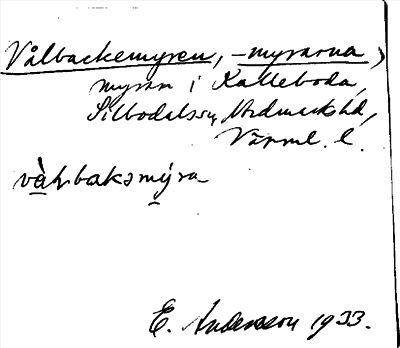 Vålbackemyren, -myrarna,
myrar i Kalleboda,
Silbodalssn, Nordmarks hd,
Värml. l.
vàl̥bakamýra
E. Andersson 1933.